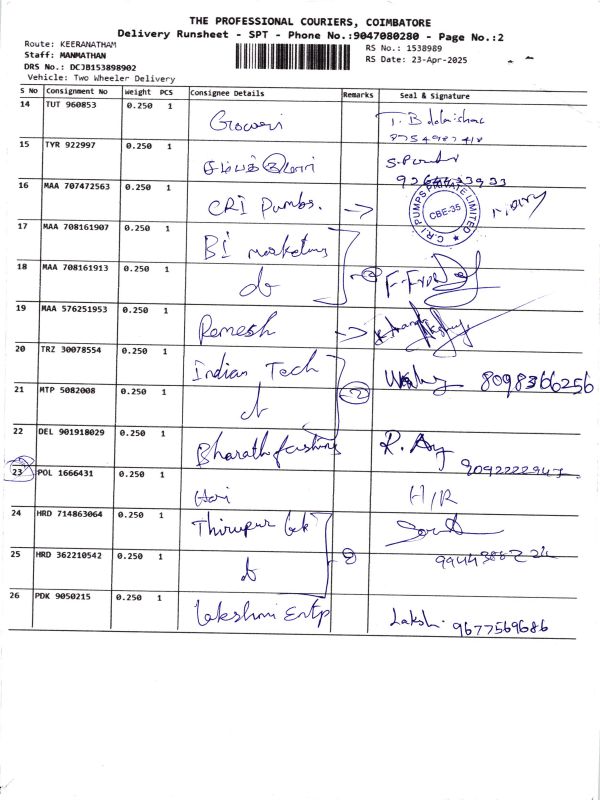 THE PROFESSIONAL COURIERS, COIMBATORE
Delivery Runsheet - SPT - Phone No.:9047080280 - Page No.:2
Route: KEERANATHAM
RS No.: 1538989
Staff: MANMATHAN
RS Date: 23-Apr-2025
DRS No.: DCJB153898902
Vehicle: Two Wheeler Delivery
S No Consignment No Weight PCS Consignee Details Remarks Seal & Signature
14 TUT 960853 0.250 1
8754987418
15 TYR 922997 0.250 1
16 MAA 707472563 0.250 1 CRI Pumbs.
C.R.I PUMPS PRIVATE LIMITED
CBE-35
17 MAA 708161907 0.250 1 BI marketing
18 MAA 708161913 0.250 1 do 2
19 MAA 576251953 0.250 1 Ramesh
20 TRZ 30078554 0.250 1 Indian Tech
8098366256
21 MTP 5082008 0.250 1 do 2
22 DEL 901918029 0.250 1 Bharath
9092222947
23 POL 1666431 0.250 1 Hari H/R
24 HRD 714863064 0.250 1 Thirupur
25 HRD 362210542 0.250 1 do 2
26 PDK 9050215 0.250 1 Lakshmi Entp Laksh. 9677569686